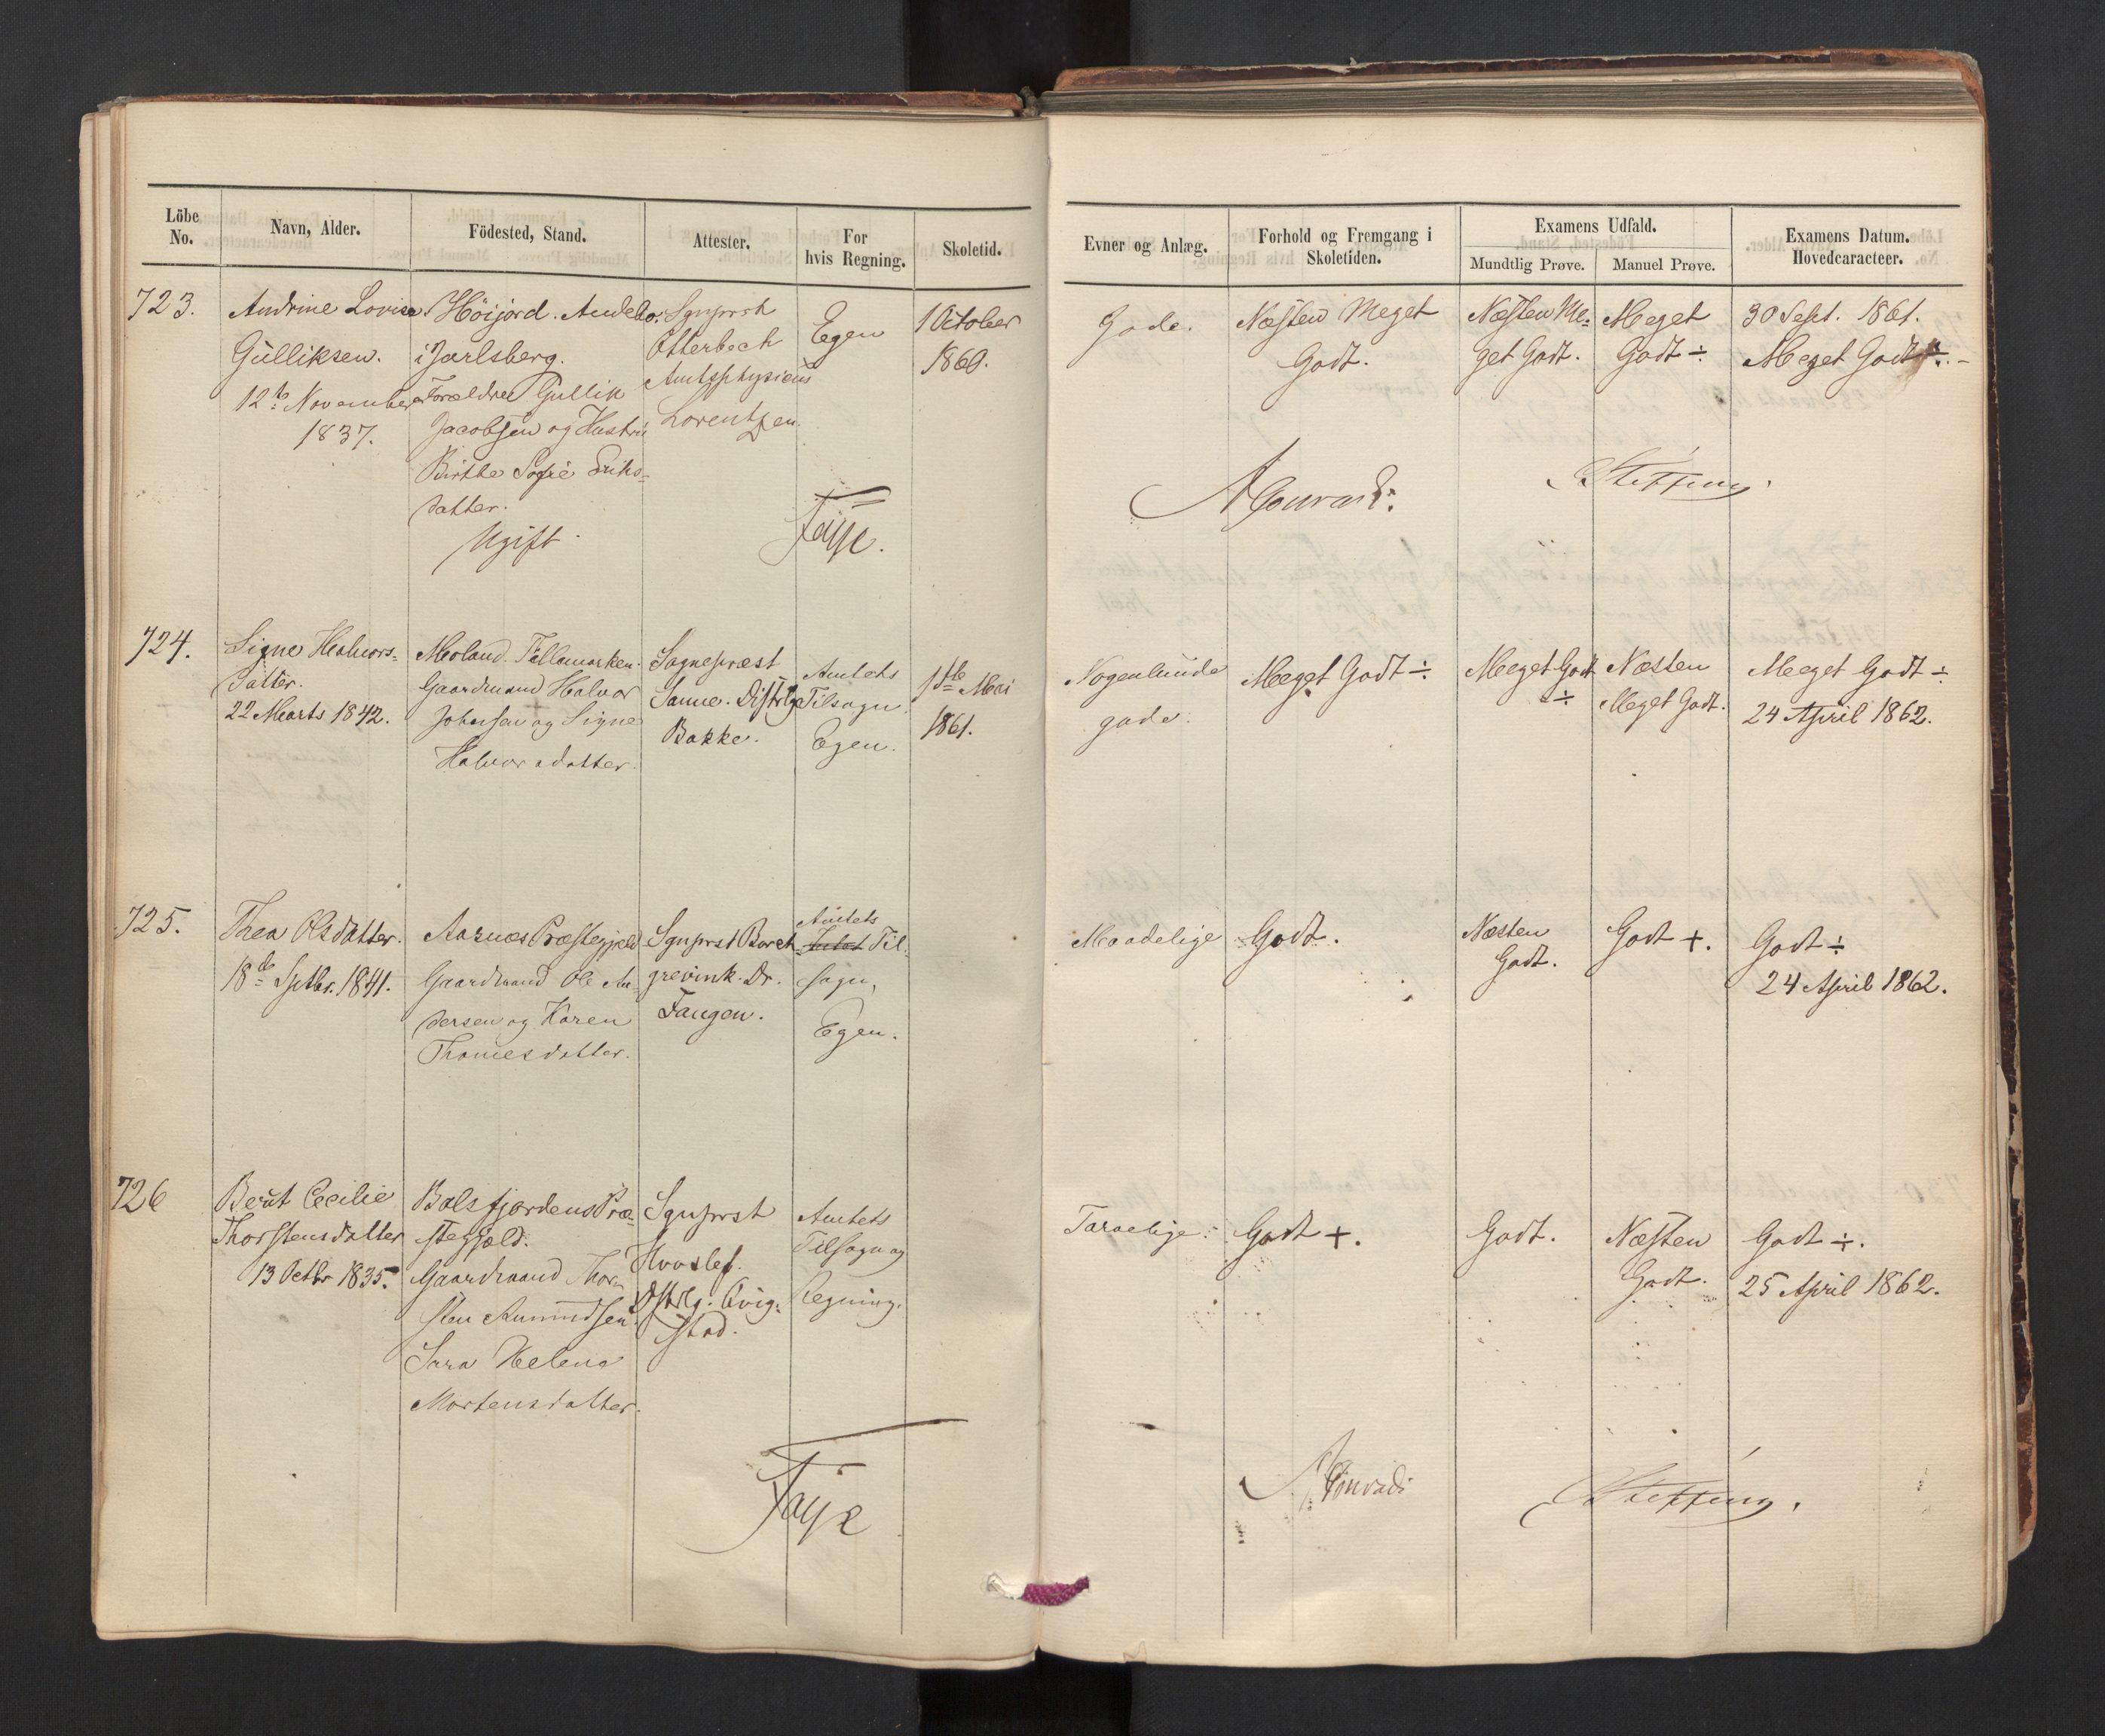 Löbe No.
Navn, Alder.
Födested, Stand.
Attester.
For hvis Regning.
Skoletid.
Evner og Anlæg.
Forhold og Fremgang i Skoletiden.
Examens Udfald.
Mundtlig Prøve.
Manuel Prøve.
Examens Datum.
Hovedcaracteer.
723.
Andrine Lovise
Gulliksen.
12te November
1837.
Höijord. Andebo:
i Jarlsberg.
Forældre Gullik
Jacobsen og Hustru
Birthe Sofie Eriks-
datter.
Ugift.
Sgnprst
Otterbech
Amtsphysicus
Lorentzen.
Egen
1 October
1860.
Gode.
Næsten Meget
Godt.
Næsten Me-
get Godt.
Meget
Godt ÷
30 Sept. 1861.
Meget Godt ÷.
Faye.
Conradi.
Steffens.
724.
Signe Halvors-
datter.
22 Marts 1842.
Moland. Tellemarken.
Gaardmand Halvor
Johnsen og Signe
Halvorsdatter.
Sognepræst
Sanne. Distrlg
Bakke.
Amtets
Tilsagn.
Egen.
1ste Mai
1861.
Nogenlunde
gode.
Meget Godt ÷
Meget Godt
÷
Næsten
Meget Godt.
Meget Godt ÷
24 April 1862.
725.
Thea Olsdatter.
18de Sptbr. 1841.
Aasnæs Præstegjeld
Gaardmand Ole An-
dersen og Karen
Thomesdatter.
Sgnprst Borch
grevink. Dr.
Fangen.
Amtets
Til-
sagn,
Egen.
Maadelige
Godt.
Næsten
Godt.
Godt +.
Godt ÷
24 April 1862.
726
Berit Cecilie
Thorstensdatter
13 Octbr 1835.
Balsfjordens Præ-
stegjeld.
Gaardmand Thor-
sten Amundsen
Sara Helena
Mortensdatter.
Sgnprst
Hvoslef.
Dstrlg. Qvig-
stad.
Amtets
Tilsagn og
Regning.
Taaelige.
Godt +.
Godt.
Næsten
Godt.
Godt ÷.
25 April 1862.
Faye
Conradi
Steffens.